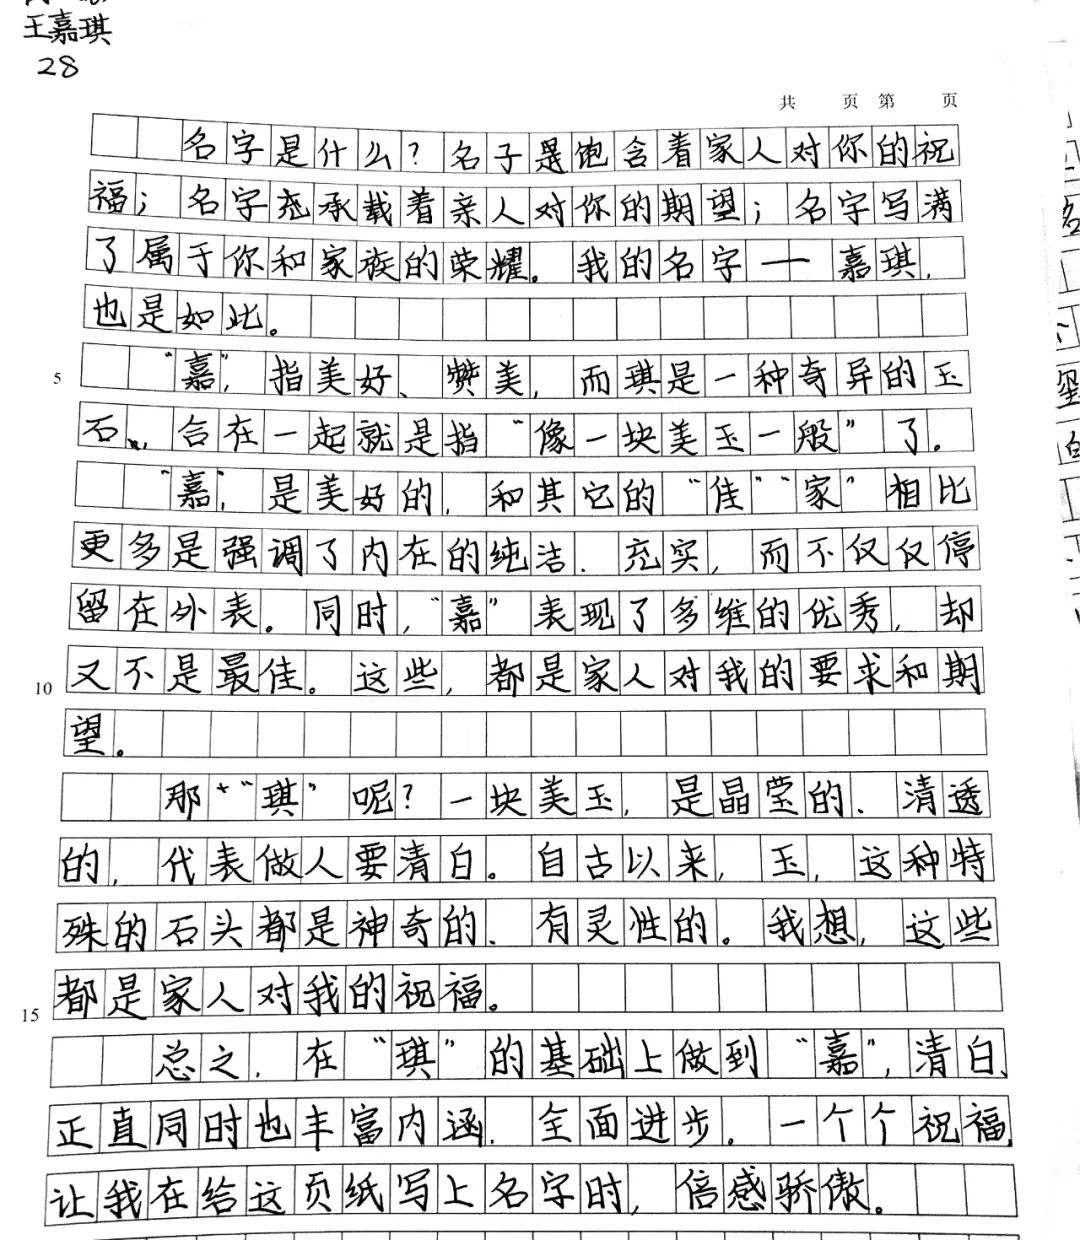 王嘉琪
28
共 页 第 页
名字是什么?名子是饱含着家人对你的祝
福;名字充承载着亲人对你的期望;名字写满
了属于你和家族的荣耀。我的名字——嘉琪,
也是如此。
5 “嘉”,指美好、赞美,而琪是一种奇异的玉
石、合在一起就是指“像一块美玉一般”了。
“嘉”,是美好的,和其它的“佳”“家”相比
更多是强调了内在的纯洁、充实,而不仅仅停
留在外表。同时,“嘉”表现了多维的优秀,却
10 又不是最佳。这些,都是家人对我的要求和期
望。
那“琪”呢?一块美玉,是晶莹的、清透
的,代表做人要清白。自古以来,玉,这种特
殊的石头都是神奇的、有灵性的。我想,这些
15 都是家人对我的祝福。
总之,在“琪”的基础上做到“嘉”,清白、
正直同时也丰富内涵、全面进步。一个个祝福,
让我在给这页纸写上名字时,倍感骄傲。